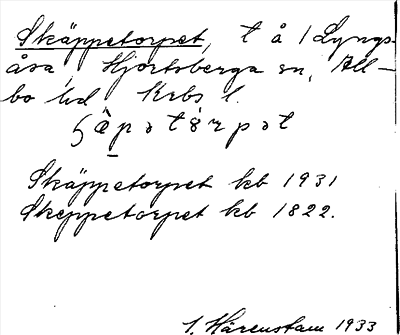 Skäppetorpet, t å 1 Lyngs-
åsa, Hjortsberga sn, All-
bo hd Krbs l.
Skäppetorpet kb 1931
Skeppetorpet kb 1822.
1. Härenstam 1933